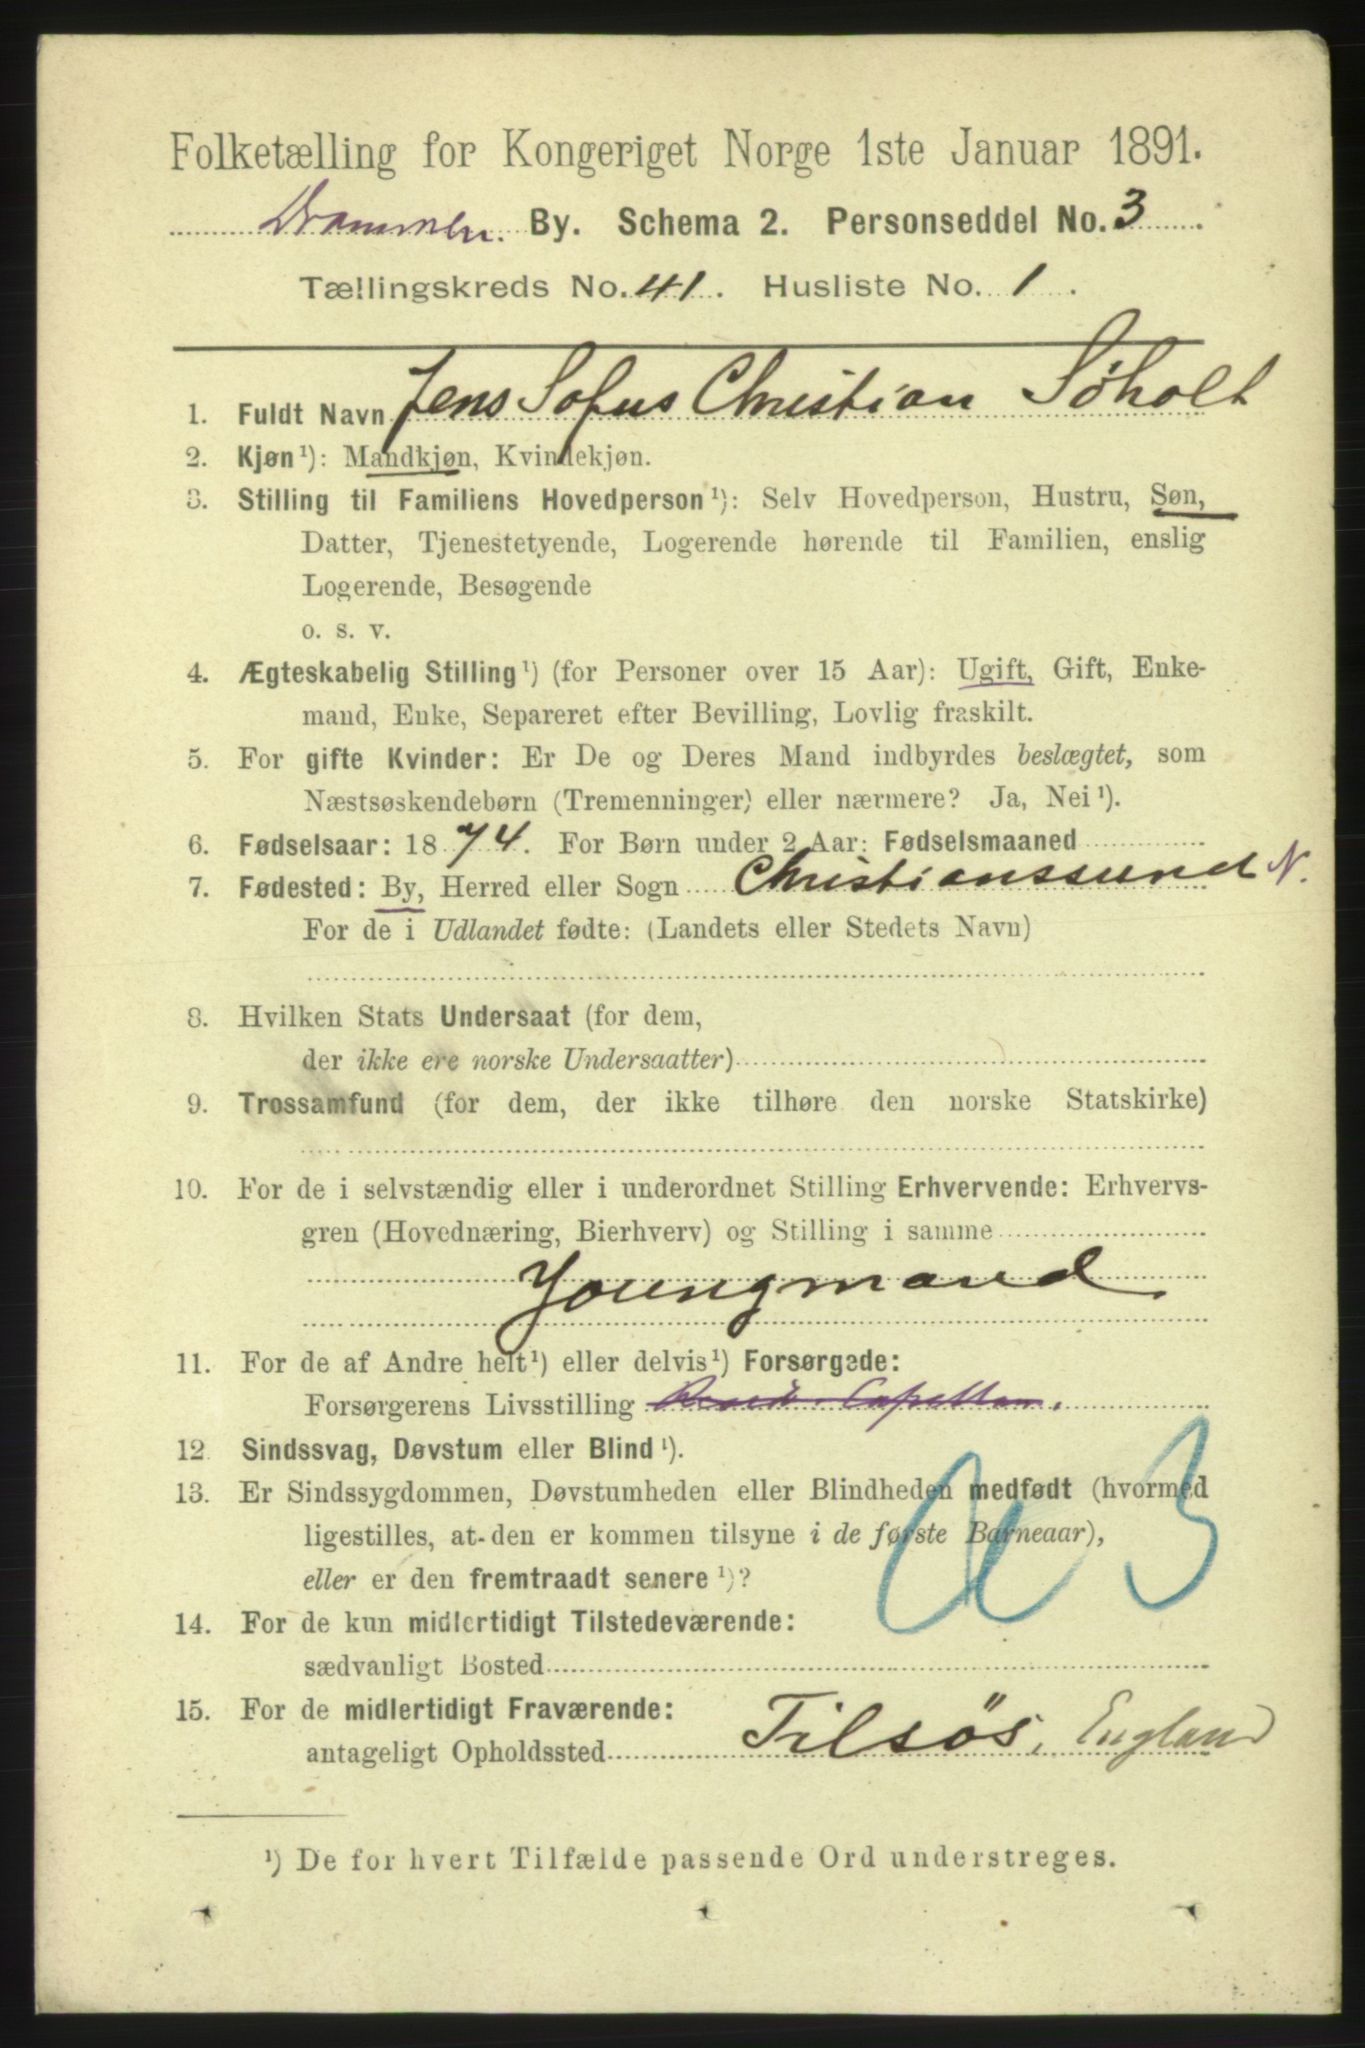 Folketælling for Kongeriget Norge 1ste Januar 1891.
Drammen. By. Schema 2. Personseddel No. 3
Tællingskreds No. 41. Husliste No. 1.
1. Fuldt Navn Jens Sofus Christian Søholt
2. Kjøn ¹): Mandkjøn, Kvindekjøn.
3. Stilling til Familiens Hovedperson ¹): Selv Hovedperson, Hustru, Søn,
Datter, Tjenestetyende, Logerende hørende til Familien, enslig
Logerende, Besøgende
o. s. v.
4. Ægteskabelig Stilling ¹) (for Personer over 15 Aar): Ugift, Gift, Enke-
mand, Enke, Separeret efter Bevilling, Lovlig fraskilt.
5. For gifte Kvinder: Er De og Deres Mand indbyrdes beslægtet, som
Næstsøskendebørn (Tremenninger) eller nærmere? Ja, Nei ¹).
6. Fødselsaar: 1874. For Børn under 2 Aar: Fødselsmaaned
7. Fødested: By, Herred eller Sogn Christianssund N.
For de i Udlandet fødte: (Landets eller Stedets Navn)
8. Hvilken Stats Undersaat (for dem,
der ikke ere norske Undersaatter)
9. Trossamfund (for dem, der ikke tilhøre den norske Statskirke)
10. For de i selvstændig eller i underordnet Stilling Erhvervende: Erhvervs-
gren (Hovednæring, Bierhverv) og Stilling i samme
Youngmand.
11. For de af Andre helt ¹) eller delvis ¹) Forsørgede:
Forsørgerens Livsstilling Resid. Capellan.
12. Sindssvag, Døvstum eller Blind ¹).
13. Er Sindssygdommen, Døvstumheden eller Blindheden medfødt (hvormed
ligestilles, at den er kommen tilsyne i de første Barneaar),
eller er den fremtraadt senere ¹)?
14. For de kun midlertidigt Tilstedeværende:
sædvanligt Bosted
15. For de midlertidigt Fraværende:
antageligt Opholdssted Tilsøs. England
¹) De for hvert Tilfælde passende Ord understreges.